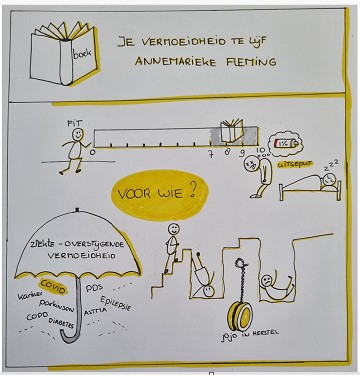 boek
JE VERMOEIDHEID TE LIJF
ANNEMARIEKE FLEMING
FIT
0 7 8 9 10
1%
UITGEPUT
zzz
VOOR WIE?
ZIEKTE-OVERSTIJGENDE
VERMOEIDHEID
COVID
PDS
kanker
parkinson
EPILEPSIE
COPD
ASTMA
DIABETES
jojo IN HERSTEL